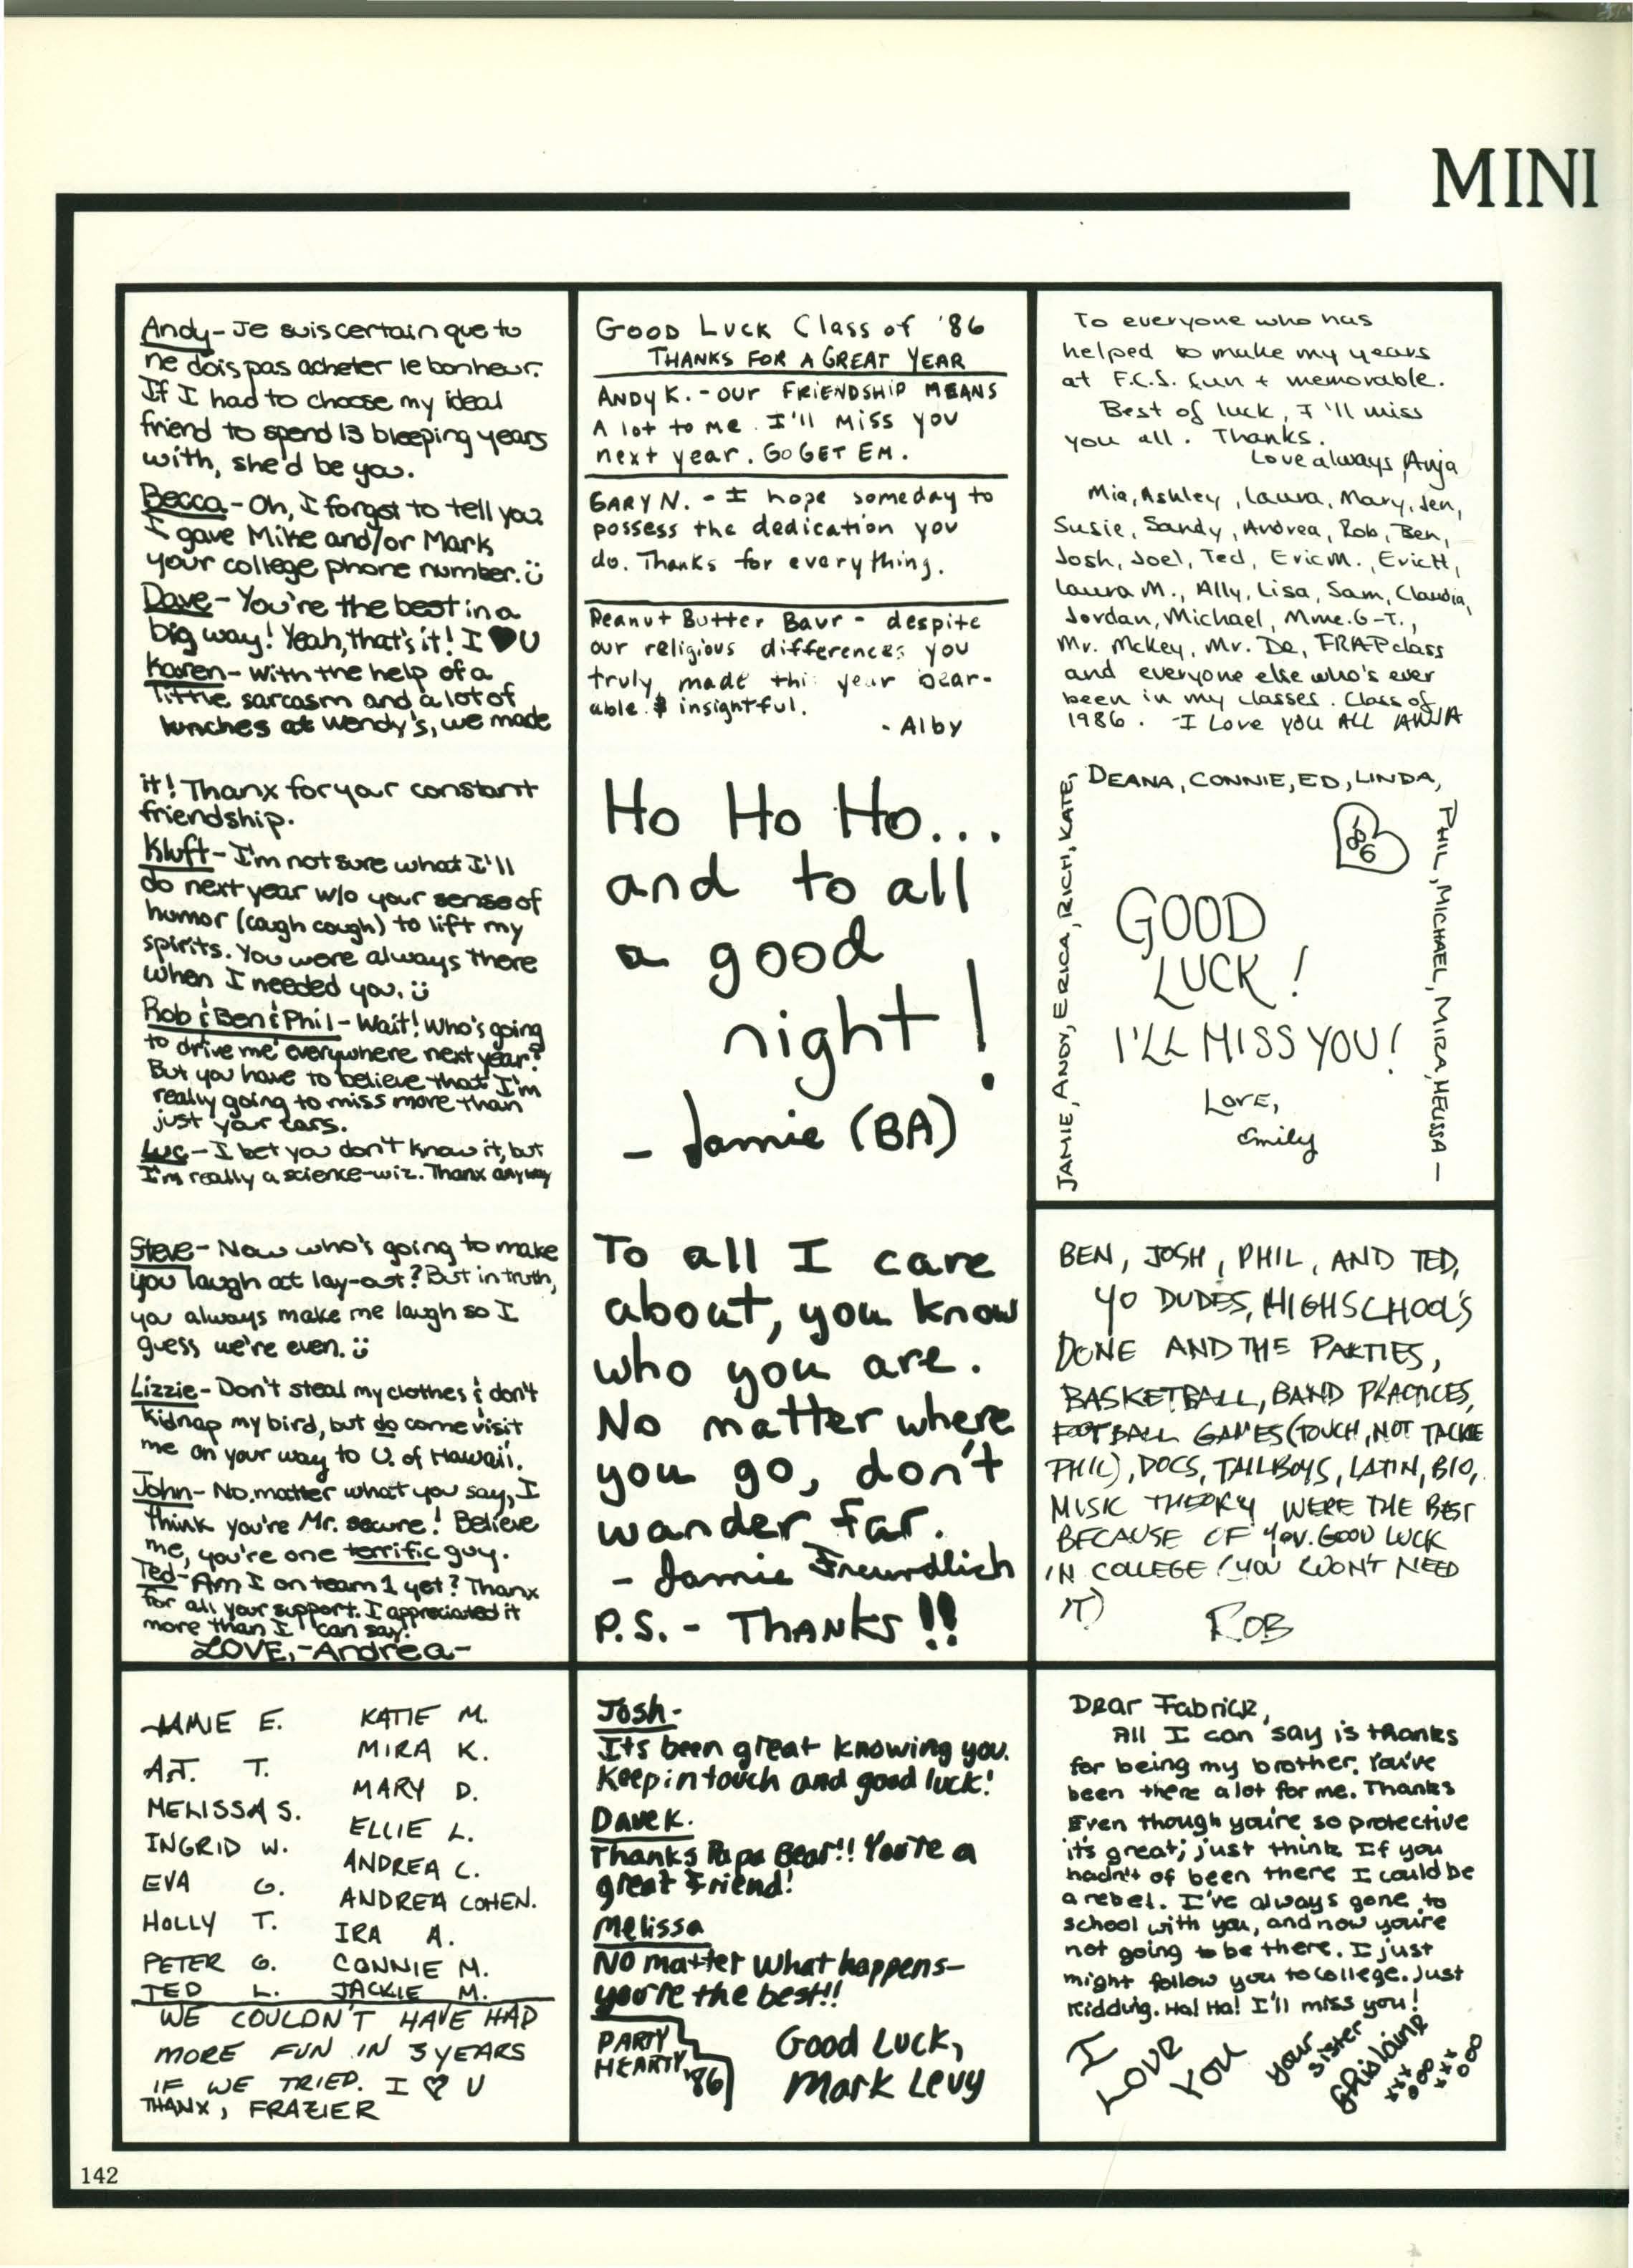 MINI
Andy- Je suis certain que tu
ne dois pas acheter le bonheur.
If I had to choose my ideal
friend to spend 13 bleeping years
with, she'd be you.
Becca- Oh, I forgot to tell you?
I gave Mike and/or Mark
your college phone number. ü
Dave- You're the best in a
big way! Yeah, that's it! I ♥ U
Karen- with the help of a
little sarcasm and a lot of
lunches at Wendy's, we made
it! Thanx for your constant
friendship.
Kluft- I'm not sure what I'll
do next year w/o your sense of
humor (cough cough) to lift my
spirits. You were always there
when I needed you. ü
Rob & Ben & Phil- Wait! Who's going
to drive me everywhere next year?
But you have to believe that I'm
really going to miss more than
just your cars.
Luc- I bet you don't know it, but
I'm really a science-wiz. Thanx anyway
Steve- Now who's going to make
you laugh at lay-out? But in truth,
you always make me laugh so I
guess we're even. ü
Lizzie- Don't steal my clothes & don't
kidnap my bird, but do come visit
me on your way to U. of Hawaii.
John- No matter what you say, I
think you're Mr. secure! Believe
me, you're one terrific guy.
Ted- Am I on team 1 yet? Thanx
for all your support. I appreciated it
more than I can say!
LOVE, -Andrea-
Good Luck Class of '86
THANKS FOR A GREAT YEAR
ANDY K. - OUR FRIENDSHIP MEANS
A lot to me. I'll miss you
next year. GO GET EM.
GARY N. - I hope someday to
possess the dedication you
do. Thanks for everything.
Peanut Butter Baur - despite
our religious differences you
truly made this year bear-
able & insightful.
- Alby
Ho Ho Ho...
and to all
a good
night!
- Jamie (BA)
To all I care
about, you know
who you are.
No matter where
you go, don't
wander far.
- Jamie Freundlich
P.S. - THANKS!!
To everyone who has
helped to make my years
at F.C.S. fun + memorable.
Best of luck, I'll miss
you all. Thanks.
Love always, Anja
Mia, Ashley, Laura, Mary, Jen,
Susie, Sandy, Andrea, Rob, Ben,
Josh, Joel, Ted, Eric M., Eric H,
Laura M., Ally, Lisa, Sam, Claudia,
Jordan, Michael, Mme. G-T.,
Mr. McKey, Mr. De, FRAP class
and everyone else who's ever
been in my classes. Class of
1986. -I Love you ALL ANJA
JAMIE, ANDY, ERICA, RICH, KATE,
DEANA, CONNIE, ED, LINDA,
PHIL, MICHAEL, MIRA, MELISSA —
'86
GOOD
LUCK!
I'LL MISS YOU!
LOVE,
Emily
BEN, JOSH, PHIL, AND TED,
YO DUDES, HIGHSCHOOL'S
DONE AND THE PARTIES,
BASKETBALL, BAND PRACTICES,
FOOTBALL GAMES (TOUCH, NOT TACKLE
PHIL), DOCS, TAILBOYS, LATIN, BIO,
MUSIC THEORY WERE THE BEST
BECAUSE OF YOU. GOOD LUCK
IN COLLEGE (YOU WON'T NEED
IT)
ROB
JAMIE E.
A.J. T.
MELISSA S.
INGRID W.
EVA G.
HOLLY T.
PETER G.
TED L.
KATIE M.
MIRA K.
MARY D.
ELLIE L.
ANDREA C.
ANDREA COHEN.
IRA A.
CONNIE M.
JACKIE M.
WE COULDN'T HAVE HAD
MORE FUN IN 3 YEARS
IF WE TRIED. I ♡ U
THANX, FRAZIER
Josh-
Its been great knowing you.
Keep in touch and good luck!
Dave K.
Thanks Papa Bear!! You're a
great Friend!
Melissa
NO matter what happens-
you're the best!!
PARTY
HEARTY '86
Good Luck,
Mark Levy
Dear Fabrice,
All I can say is thanks
for being my brother. You've
been there alot for me. Thanks
Even though you're so protective
it's great; just think If you
hadn't of been there I could be
a rebel. I've always gone to
school with you, and now you're
not going to be there. I just
might follow you to college. Just
kidding. Ha! Ha! I'll miss you!
I
LOVE
YOU
your
sister
Ghislaine
xxx
ooo
xxx
ooo
142